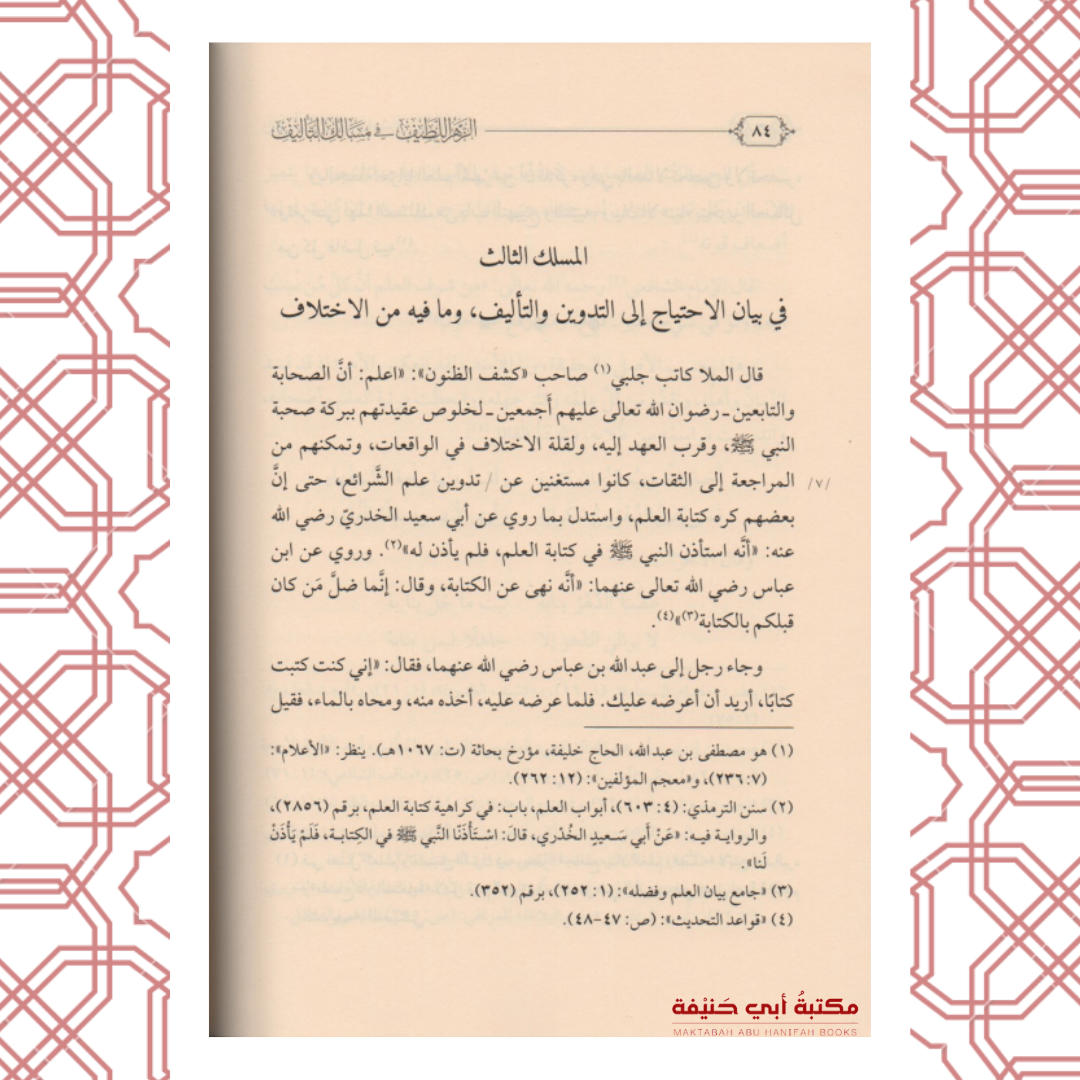 ٨٤
الزهر اللطيف في مسالك التأليف
المسلك الثالث
في بيان الاحتياج إلى التدوين والتأليف، وما فيه من الاختلاف
قال الملا كاتب جلبي(١) صاحب «كشف الظنون»: «اعلم: أنَّ الصحابة
والتابعين ـ رضوان الله تعالى عليهم أَجمعين ـ لخلوص عقيدتهم ببركة صحبة
النبي ﷺ، وقرب العهد إليه، ولقلة الاختلاف في الواقعات، وتمكنهم من
/٧/ المراجعة إلى الثقات، كانوا مستغنين عن / تدوين علم الشَّرائع، حتى إنَّ
بعضهم كره كتابة العلم، واستدل بما روي عن أبي سعيد الخدريّ رضي الله
عنه: «أنَّه استأذن النبي ﷺ في كتابة العلم، فلم يأذن له»(٢). وروي عن ابن
عباس رضي الله تعالى عنهما: «أنَّه نهى عن الكتابة، وقال: إنَّما ضلَّ مَن كان
قبلكم بالكتابة(٣)»(٤).
وجاء رجل إلى عبد الله بن عباس رضي الله عنهما، فقال: «إني كنت كتبت
كتابًا، أريد أن أعرضه عليك. فلما عرضه عليه، أخذه منه، ومحاه بالماء، فقيل
(١) هو مصطفى بن عبد الله، الحاج خليفة، مؤرخ بحاثة (ت: ١٠٦٧هـ). ينظر: «الأعلام»:
(٧: ٢٣٦)، و«معجم المؤلفين»: (١٢: ٢٦٢).
(٢) سنن الترمذي: (٤: ٦٠٣)، أبواب العلم، باب: في كراهية كتابة العلم، برقم (٢٨٥٦)،
والرواية فيه: «عَنْ أَبي سَعيدٍ الخُدْري، قالَ: اسْتَأْذَنّا النَّبي ﷺ في الكِتابة، فَلَمْ يَأْذَنْ
لَنا».
(٣) «جامع بيان العلم وفضله»: (١: ٢٥٢)، برقم (٣٥٢).
(٤) «قواعد التحديث»: (ص: ٤٧-٤٨).
مكتبةُ أبي حَنيْفة
MAKTABAH ABU HANIFAH BOOKS